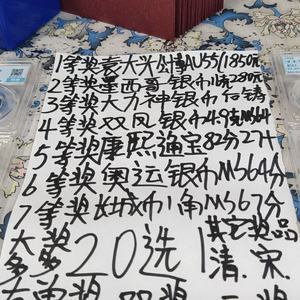 1等奖袁大头公博AU55/1850元
2等奖墨西哥银币1盎280元
3等奖大力神银币石铸
4等奖双凤银币49克MS64
5等奖康熙通宝82分27H
6等奖奥运银币MS64分
7等奖长城币1角MS67分
大奖20选1
多
其它奖品
清.宋.